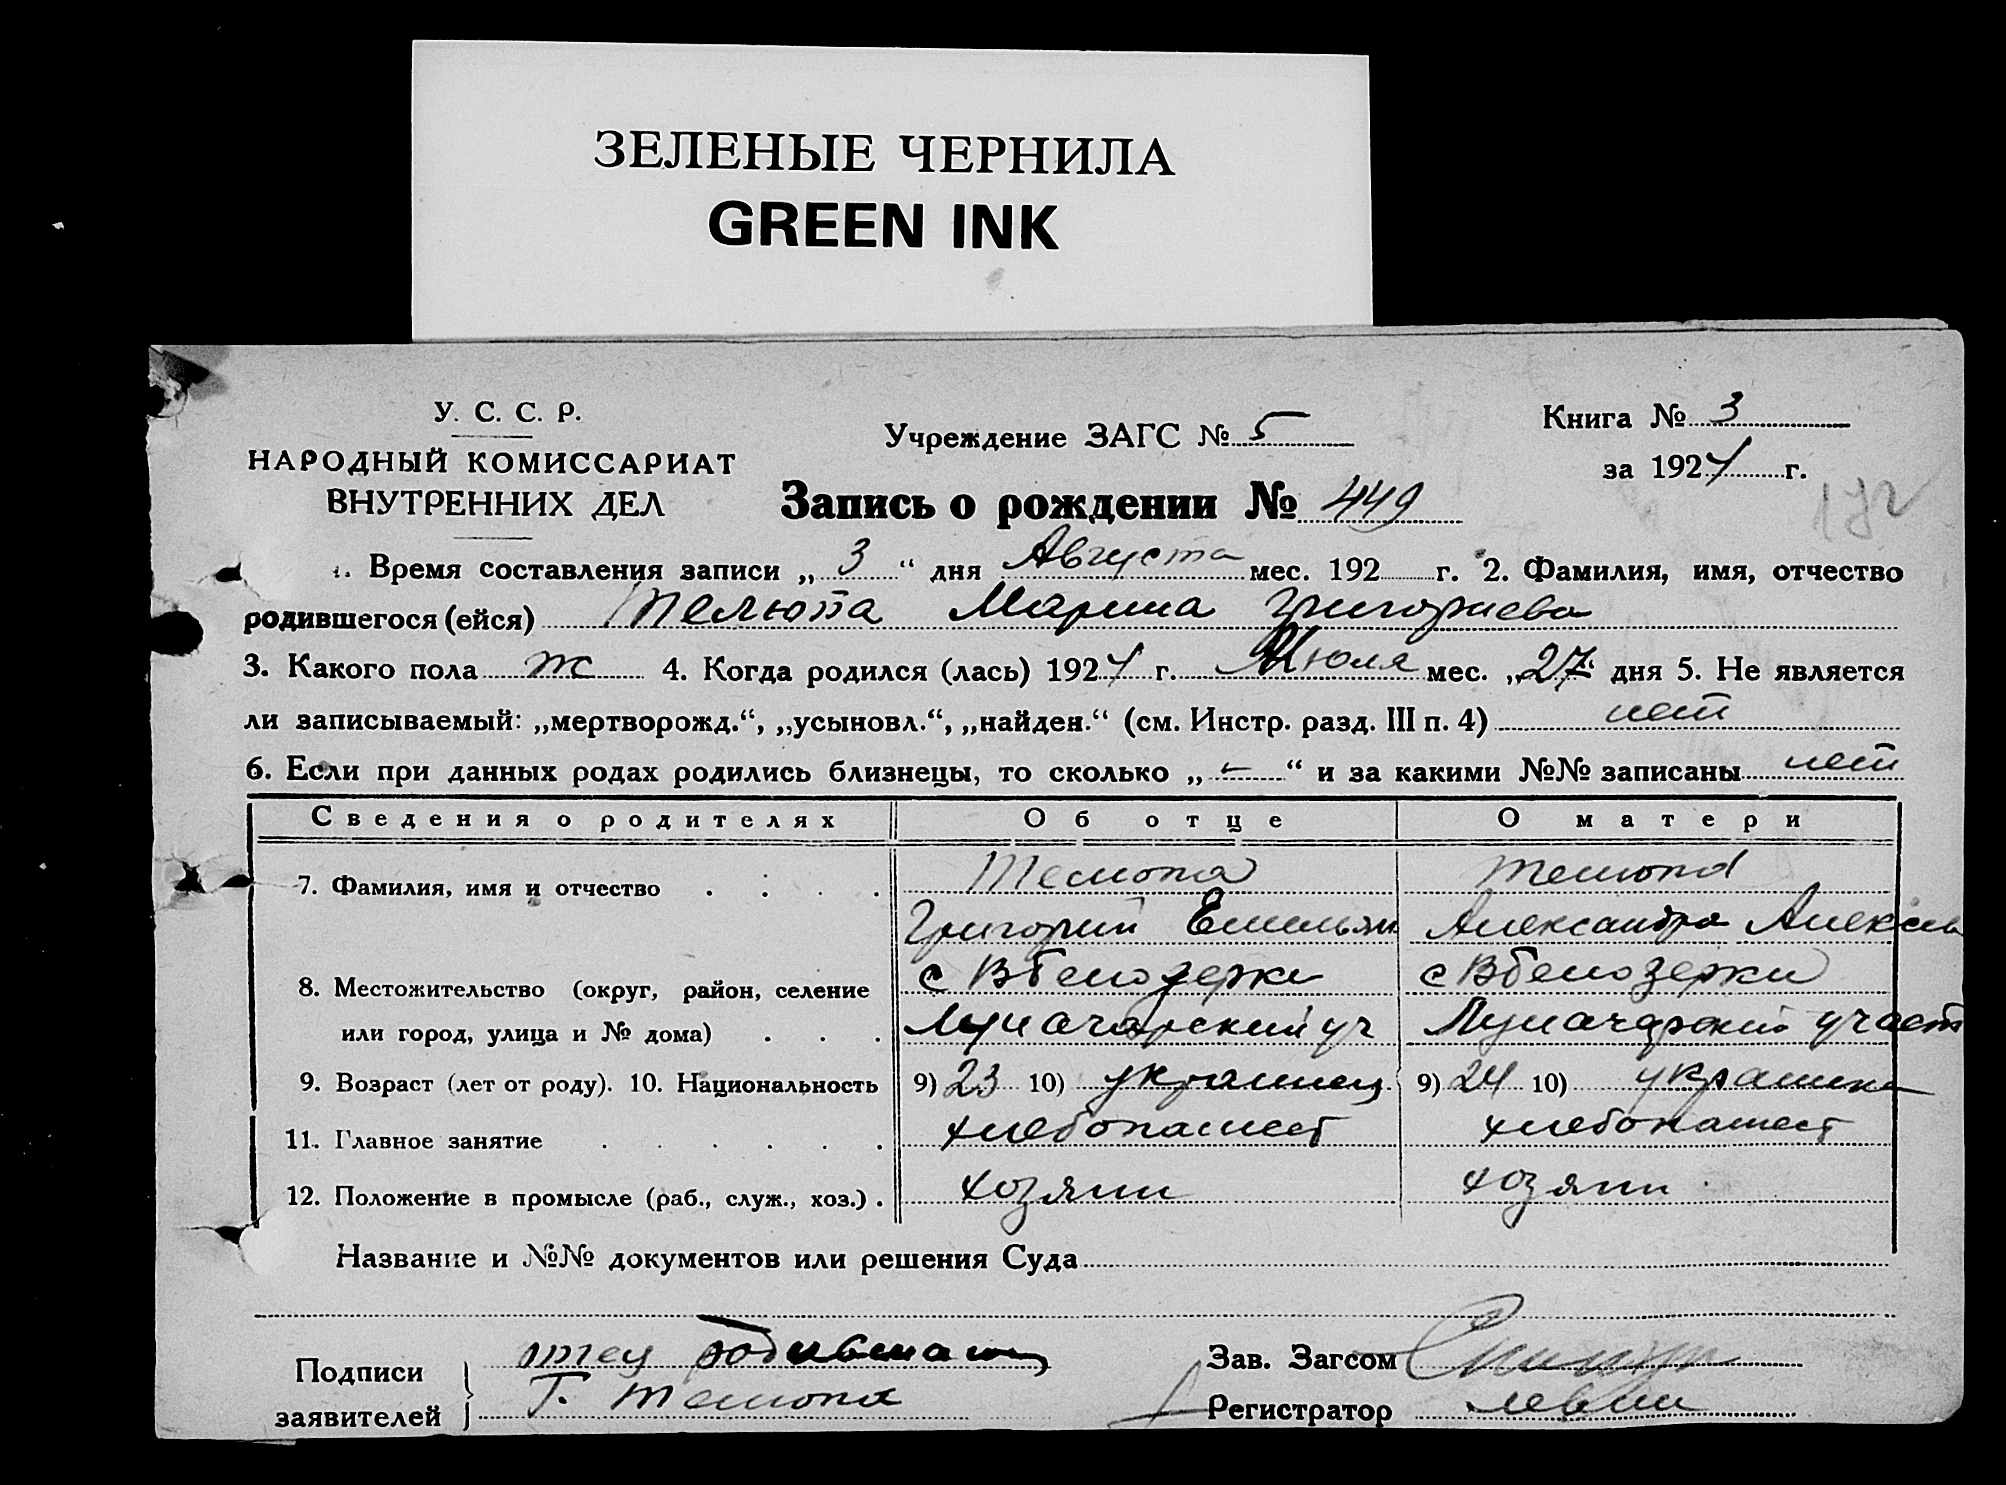 ЗЕЛЕНЫЕ ЧЕРНИЛА
GREEN INK
У. С. С. Р.
НАРОДНЫЙ КОМИССАРИАТ
ВНУТРЕННИХ ДЕЛ
Учреждение ЗАГС № 5
Книга № 3
за 1924 г.
Запись о рождении № 449
1. Время составления записи „ 3 “ дня Августа мес. 192 г. 2. Фамилия, имя, отчество
родившегося (ейся) Телюпа Марина Григориева
3. Какого пола ж 4. Когда родился (лась) 1924 г. Июля мес. „27“ дня 5. Не является
ли записываемый: „мертворожд.“, „усыновл.“, „найден.“ (см. Инстр. разд. III п. 4) нет
6. Если при данных родах родились близнецы, то сколько „ - “ и за какими №№ записаны нет
Сведения о родителях Об отце О матери
7. Фамилия, имя и отчество Телюпа Телюпа
Григорий Емельян Александра Алексеев
с Вбелозерки с Вбелозерки
8. Местожительство (округ, район, селение
или город, улица и № дома) Луначарский уч Луначарский участ
9. Возраст (лет от роду). 10. Национальность 9) 23 10) украинец 9) 24 10) украинка
11. Главное занятие хлебопашест хлебопашест
12. Положение в промысле (раб., служ., хоз.) хозяин хозяин
Название и №№ документов или решения Суда
Подписи
заявителей
отец
Г. Телюпа
Зав. Загсом
Регистратор Левин